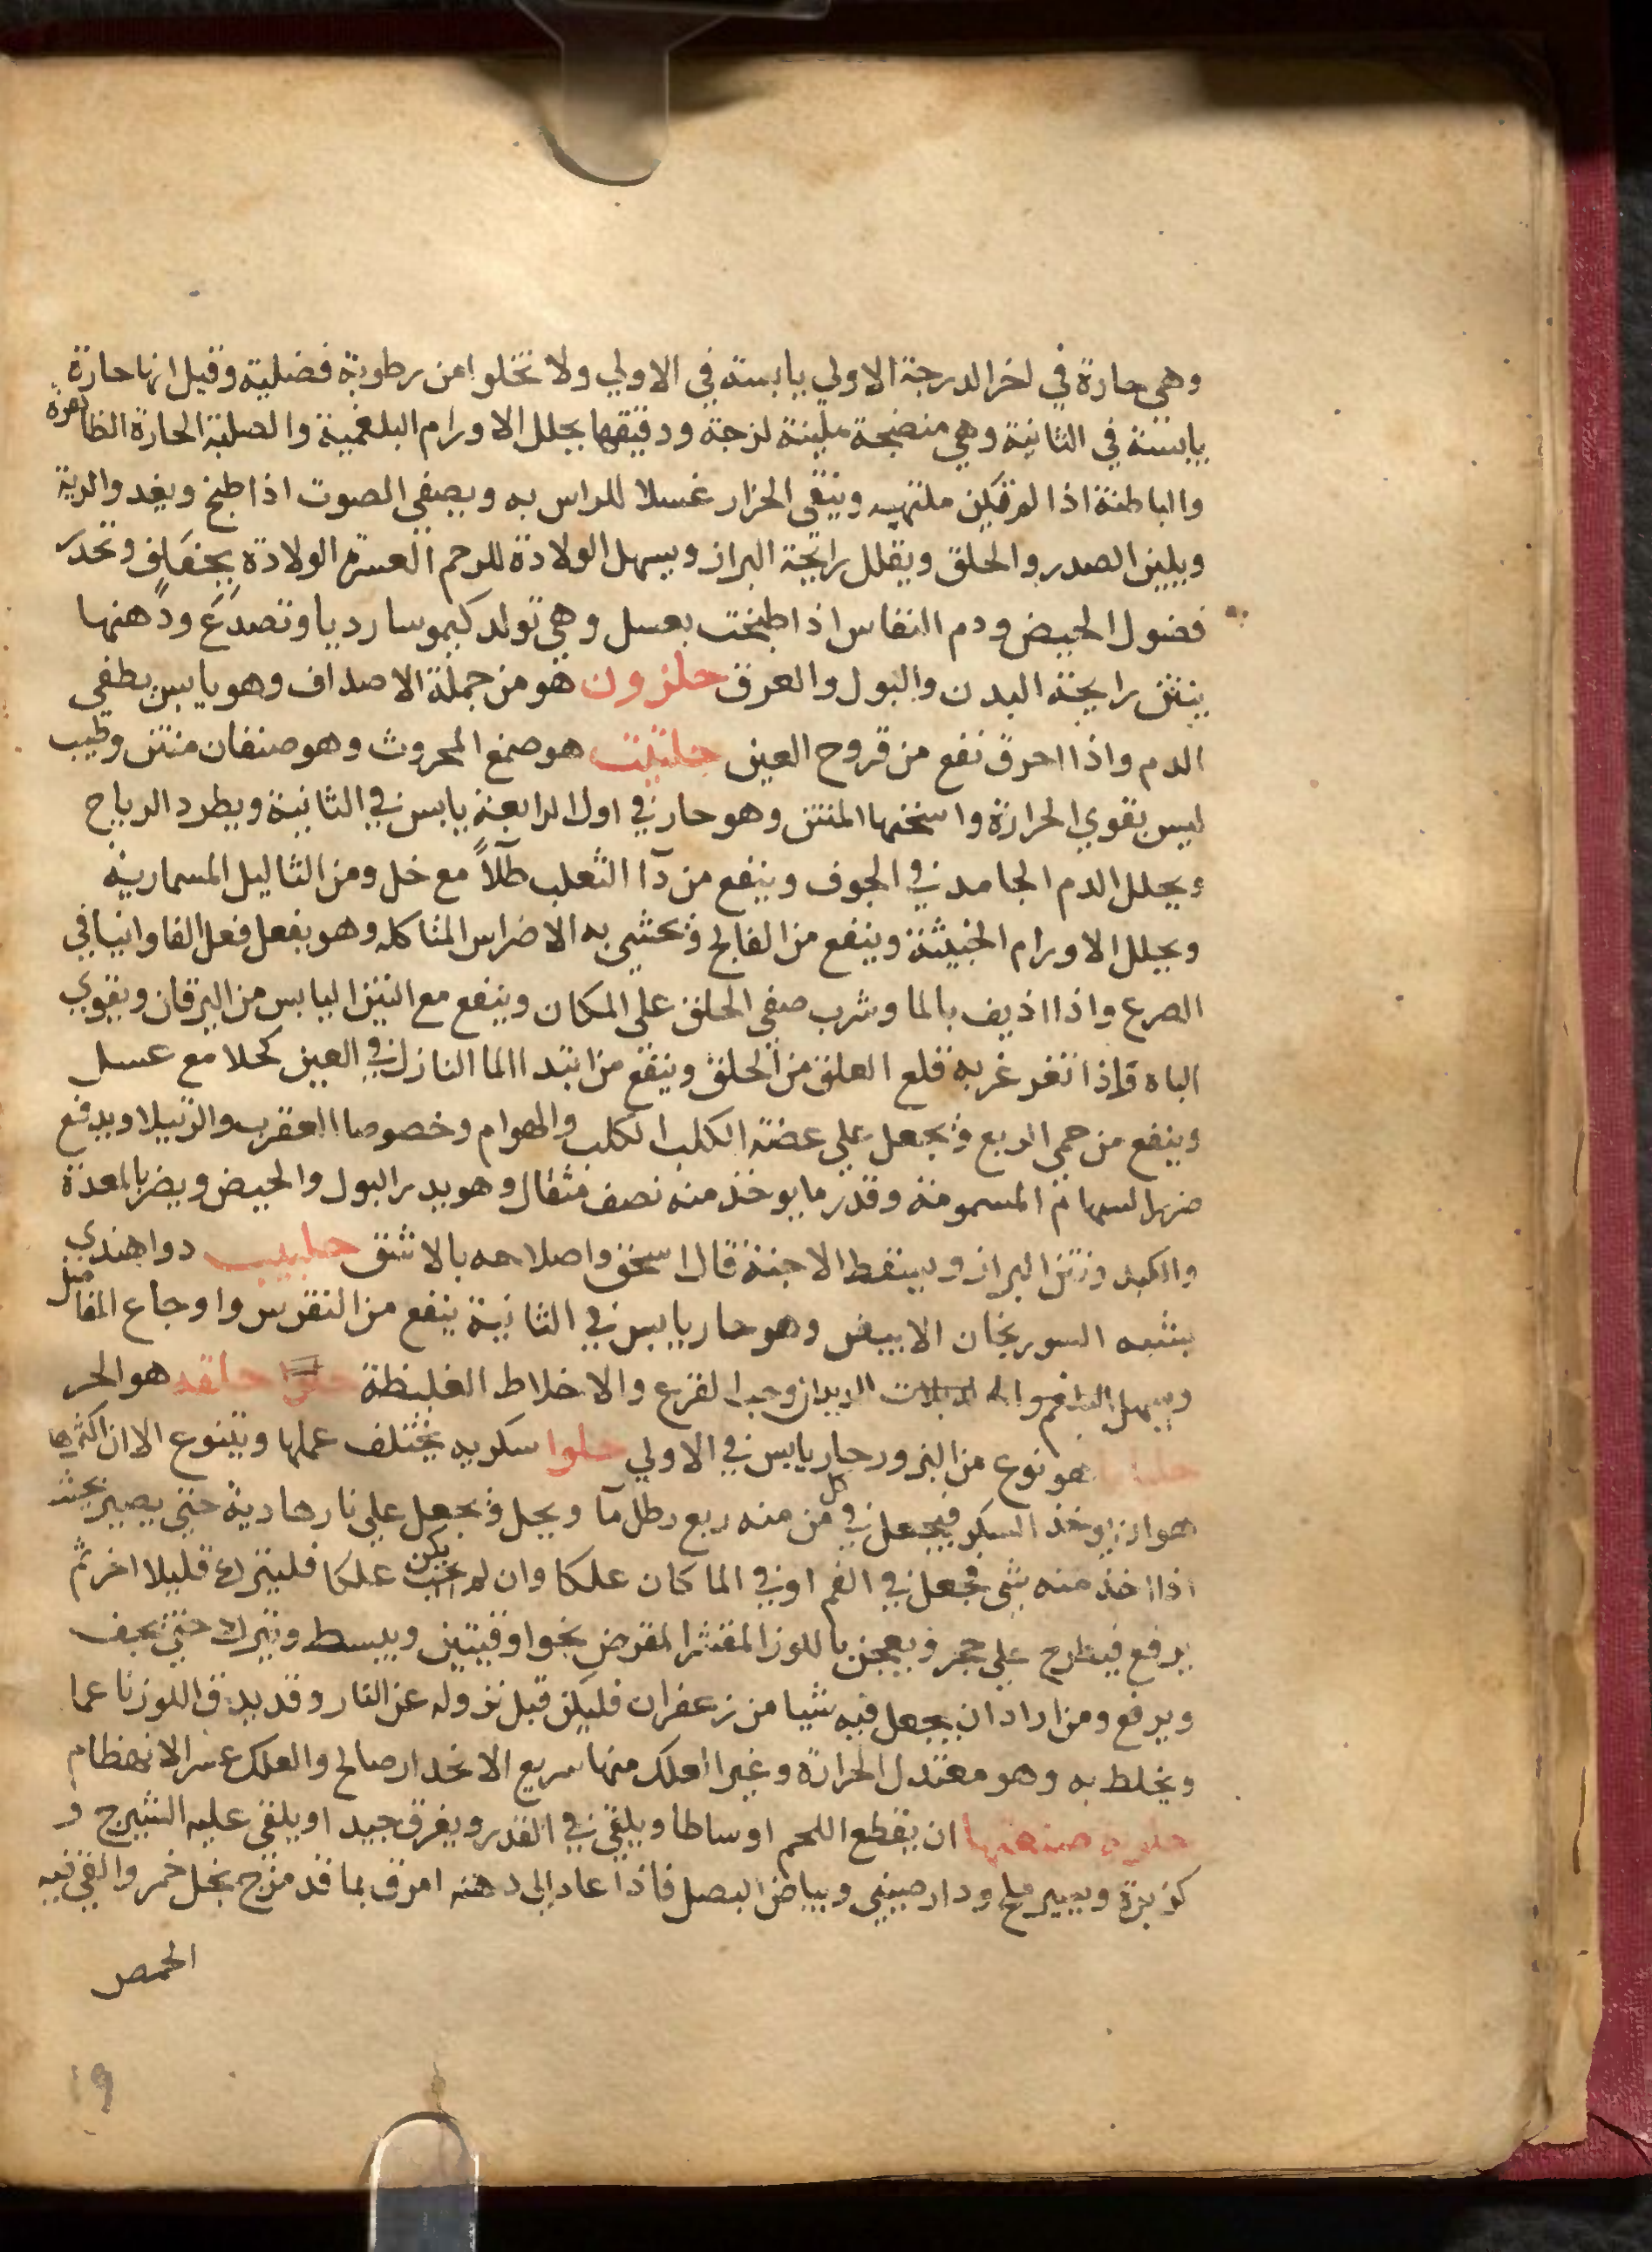 وهي حارة في اخر الدرجة الاولي يابسة في الاولي ولا تخلوا من رطوبة فضلية وقيل انها حارة
يابسة في الثانية وهي منضجة ملينة لزجة ودقيقها يحلل الاورام البلغمية والصلبة الحارة الظاهرة
والباطنة اذا لم تكن ملتهبه وينقي الحزاز غسلا للراس به ويصفي الصوت اذا طبخ ويغدو الرية
ويلين الصدر والحلق ويقلل رايحة البراز ويسهل الولادة للرحم العسرة الولادة بجفاف وتحدر
فضول الحيض ودم النفاس اذا طبخت بعسل وهي تولد كيموسا رديا وتصدع ودهنها
ينتن رايحة البدن والبول والعرق حلزون هو من جملة الاصداف وهو يابس يطفي
الدم واذا احرق نفع من قروح العين حلتيت هو صمغ المحروث وهو صنفان منتن وطيب
ليس بقوي الحرارة واسخنها المنتن وهو حار في اول الرابعة يابس في الثانية ويطرد الرياح
ويحلل الدم الجامد في الجوف وينفع من دآ الثعلب طلآً مع خل ومن الثاليل المسمارية
ويحلل الاورام الخبيثة وينفع من الفالج وتحشي به الاضراس المتاكله وهو يفعل فعل الفاوانيا في
الصرع واذا اذيف بالما وشرب صفي الحلق علي المكان وينفع مع التين اليابس من اليرقان ويقوي
الباه واذا تغرغر به قلع العلق من الحلق وينفع من ابتدا الما النازل في العين كحلا مع عسل
وينفع من حمي الربع ويجعل علي عضة الكلب الكلب والهوام وخصوصا العقرب والرتيلا ويدفع
ضرر السهام المسمومة وقدر ما يوخذ منه نصف مثقال وهو يدر البول والحيض ويضر بالمعدة
والكبد ونتن البراز ويسقط الاجنة قال اسحق واصلاحه بالاشق حلبيب دوا هندي
يشبه السورنجان الابيض وهو حار يابس في الثانية ينفع من النقرس واوجاع المفاصل
ويسهل البلغم والديدان وحب القرع والاخلاط الغليظة هو الحر
هو نوع من البزور حار يابس في الاولي حلوا سكريه يختلف عملها ويتنوع الا ان اكثرها
هو ان يوخذ السكر فيجعل في كل من منه ربع رطل مآ ويحل ويجعل علي نار هادية حتي يصير بحيث
اذا اخذ منه شي فجعل في الفم او في الما كان علكا وان لم يكن علكا فليترك قليلا اخر ثم
يرفع فيطرح علي حجر ويعجن باللوز المقشر المقرض نحو اوقيتين ويبسط ويترك حتي يجف
ويرفع ومن اراد ان يجعل فيه شيا من زعفران فليكن قبل نزوله عن النار وقد يدق اللوز ناعما
ويخلط به وهو معتدل الحرارة وغير العلك منها سريع الانحدار صالح والعلك عسر الانهظام
صنعتها ان يقطع اللحم اوساطا ويلقي في القدر ويغرق جيد او يلقي عليه الشيرج و
كزبرة ويسير ملح ودارصيني وبياض البصل فاذا عاد الي دهنه امرق بما قد مزج بخل خمر والقي فيه
الحمص
١٩